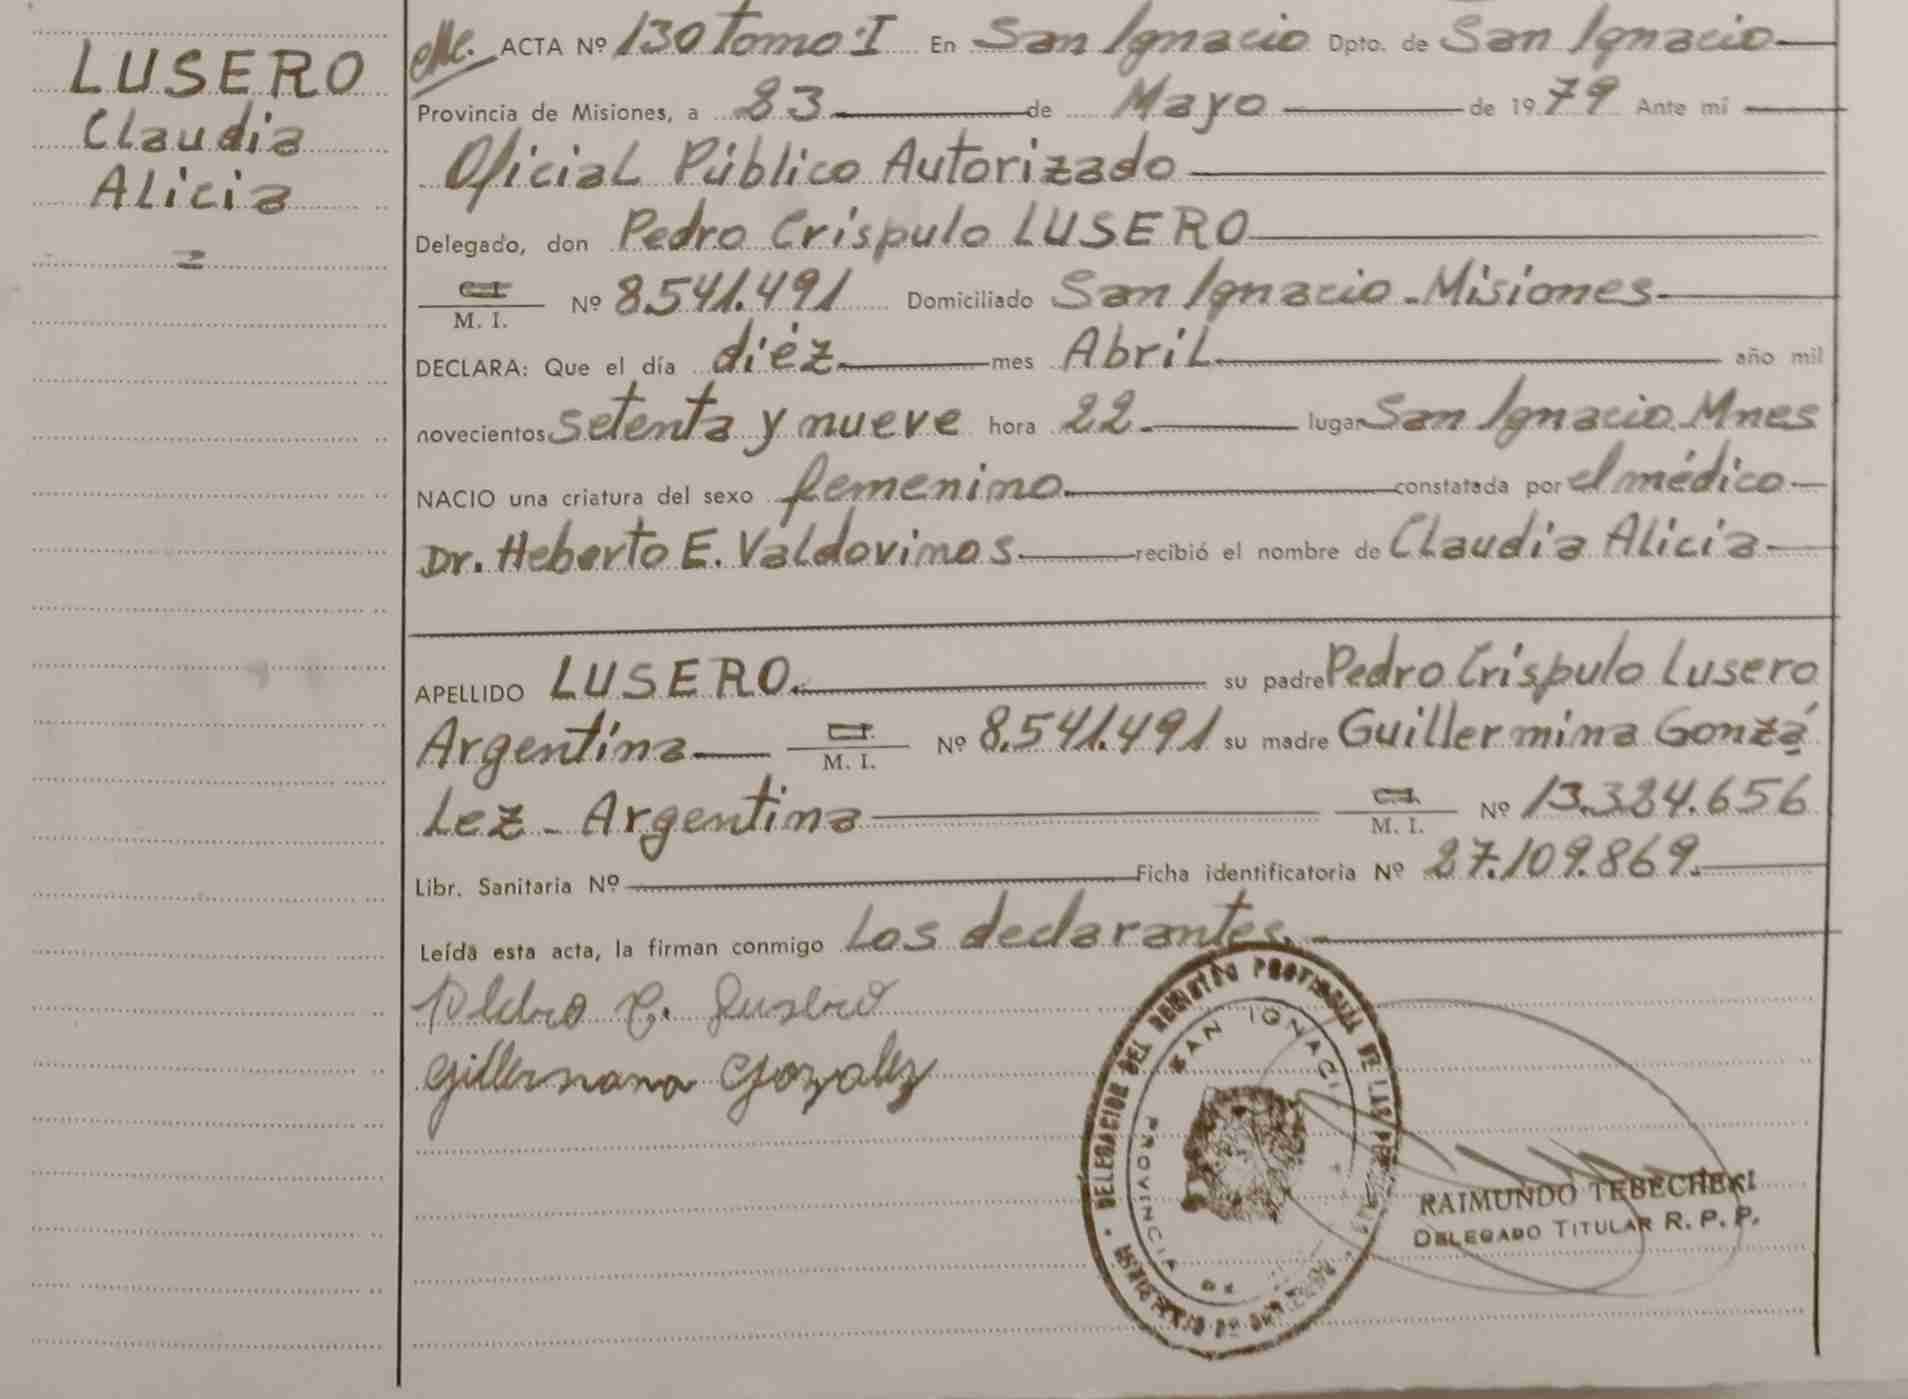 LUSERO
Claudia
Alicia
ACTA Nº 130 Tomo I En San Ignacio Dpto. de San Ignacio
Provincia de Misiones, a 23 de Mayo de 1979 Ante mí
Oficial Público Autorizado
Delegado, don Pedro Críspulo LUSERO
C.I.
M. I. Nº 8.541.491 Domiciliado San Ignacio - Misiones
DECLARA: Que el día diéz mes Abril año mil
novecientos setenta y nueve hora 22 lugar San Ignacio. Mnes
NACIO una criatura del sexo femenino constatada por el médico
Dr. Heberto E. Valdovinos recibió el nombre de Claudia Alicia
APELLIDO LUSERO su padre Pedro Críspulo Lusero
Argentina C.I. M. I. Nº 8.541.491 su madre Guillermina Gonzá
Lez - Argentina C.I. M. I. Nº 13.324.656
Libr. Sanitaria Nº Ficha identificatoria Nº 27.109.869.
Leída esta acta, la firman conmigo Los declarantes.
Pedro C. Lusero
Gillermana Gozalez
DELEGACION DEL REGISTRO PROVINCIAL DE LAS
SAN IGNACIO
PROVINCIA DE
RAIMUNDO TEBECHERI
DELEGADO TITULAR R. P. P.